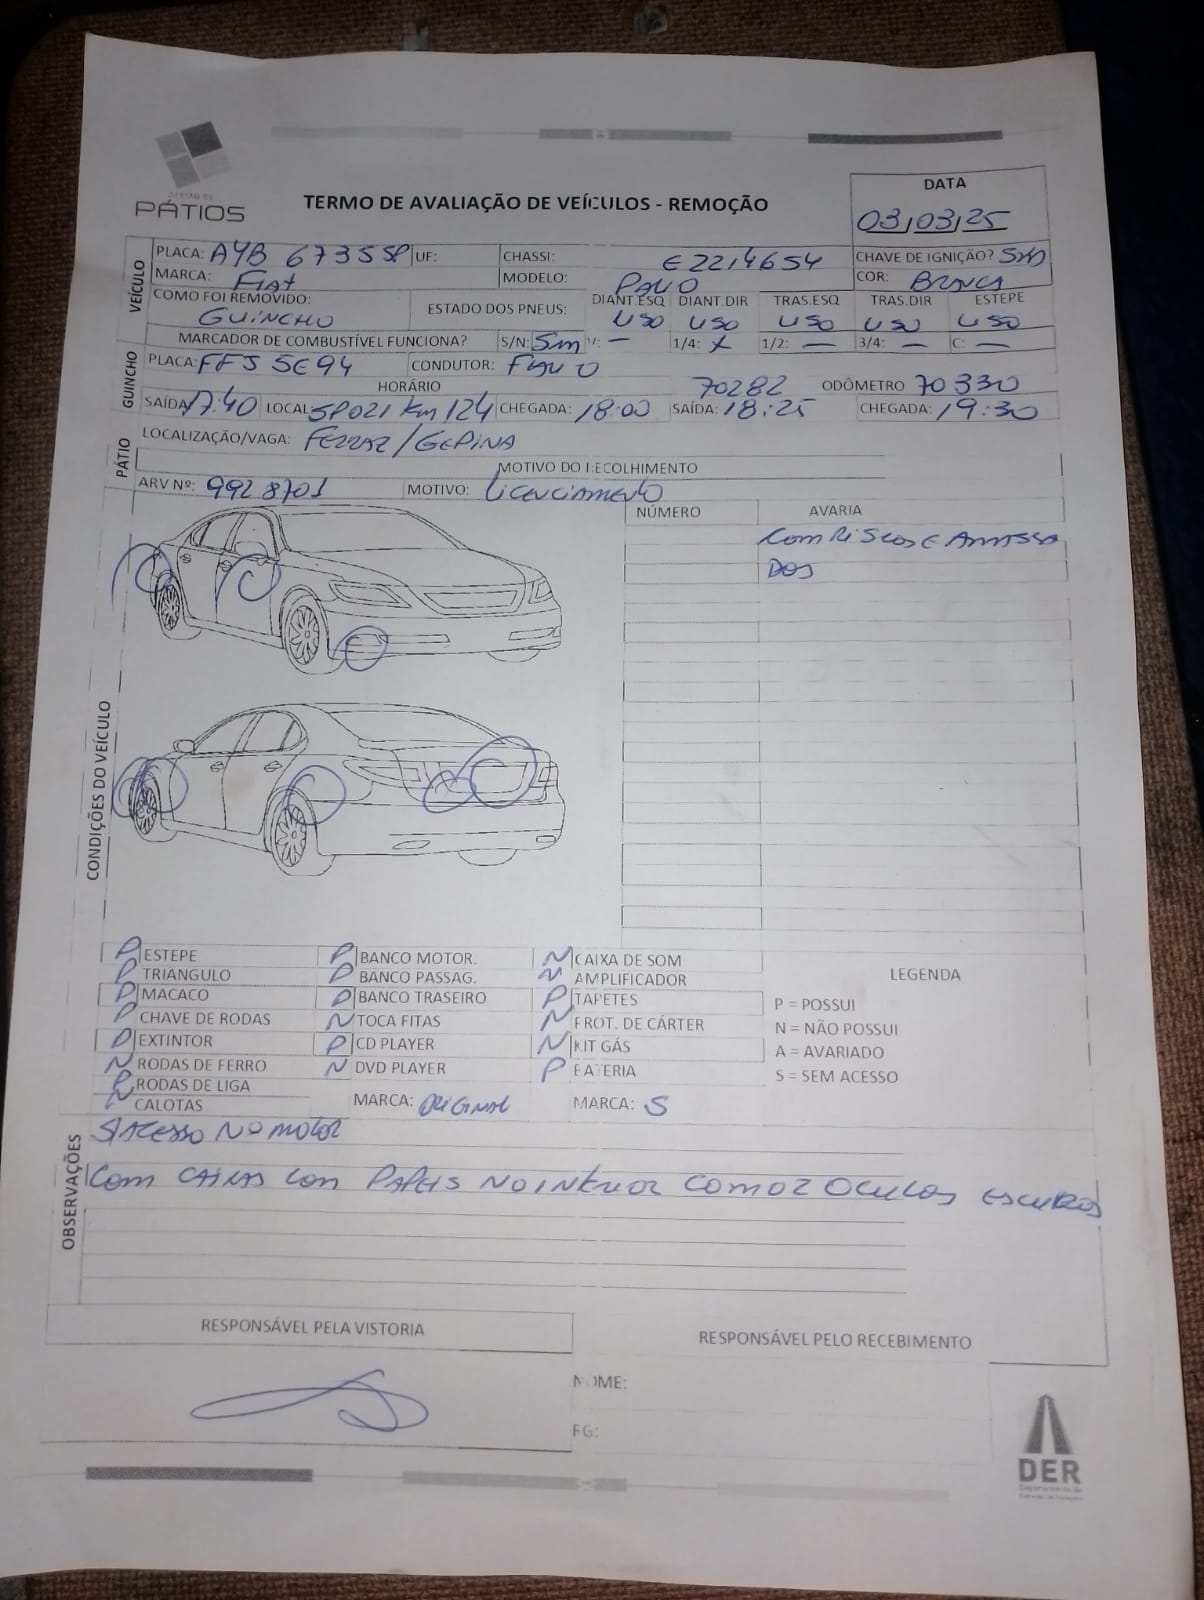 GESTÃO DE
PÁTIOS
TERMO DE AVALIAÇÃO DE VEÍCULOS - REMOÇÃO
DATA
03/03/25
VEÍCULO
PLACA: AYB 6735 SP UF: CHASSI: E2214654 CHAVE DE IGNIÇÃO?
MARCA: Fiat MODELO: PALIO COR: BRANCA
COMO FOI REMOVIDO: GUINCHO ESTADO DOS PNEUS: DIANT.ESQ DIANT.DIR TRAS.ESQ TRAS.DIR ESTEPE
USO USO USO USO USO
MARCADOR DE COMBUSTÍVEL FUNCIONA? S/N: Sim V: — 1/4: X 1/2: — 3/4: — C: —
GUINCHO
PLACA: FFJ 5E94 CONDUTOR:
HORÁRIO 70282 ODÔMETRO 70330
SAÍDA 17:40 LOCAL: SP021 Km 124 CHEGADA: 18:00 SAÍDA: 18:25 CHEGADA: 19:30
PÁTIO
LOCALIZAÇÃO/VAGA: FERRAZ/GEPINA
MOTIVO DO RECOLHIMENTO
ARV Nº: 9928701 MOTIVO: Licenciamento
CONDIÇÕES DO VEÍCULO
NÚMERO AVARIA
COM RISCOS E AMASSA
DOS
P ESTEPE P BANCO MOTOR. N CAIXA DE SOM
P TRIANGULO P BANCO PASSAG. N AMPLIFICADOR
P MACACO P BANCO TRASEIRO P TAPETES
P CHAVE DE RODAS N TOCA FITAS N PROT. DE CÁRTER
P EXTINTOR P CD PLAYER N KIT GÁS
N RODAS DE FERRO N DVD PLAYER P BATERIA
P RODAS DE LIGA
N CALOTAS MARCA: ORIGINAL MARCA: S
LEGENDA
P = POSSUI
N = NÃO POSSUI
A = AVARIADO
S = SEM ACESSO
OBSERVAÇÕES
S/ACESSO NO MOTOR
COM CAIXAS COM PAPEIS NO INTERIOR COMO 2 OCULOS ESCUROS
RESPONSÁVEL PELA VISTORIA
RESPONSÁVEL PELO RECEBIMENTO
NOME:
RG:
DER